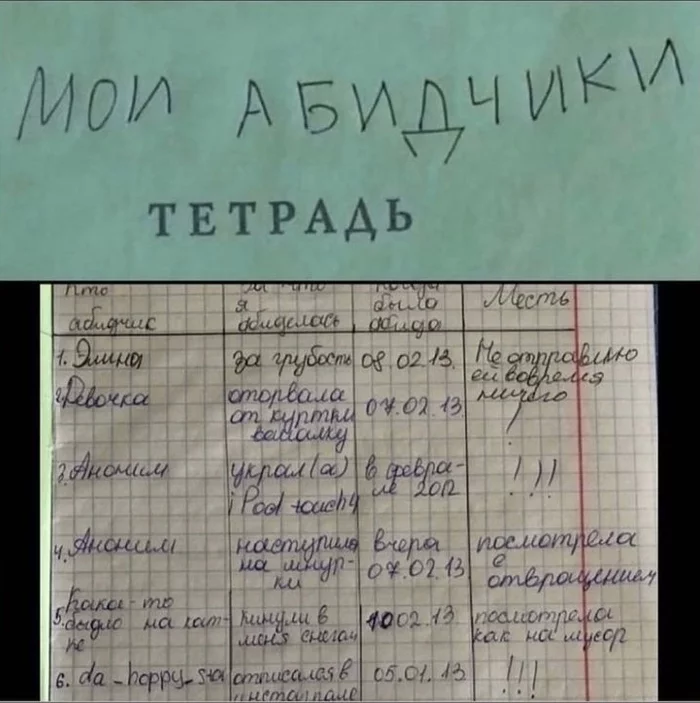 МОИ АБИДЧИКИ
ТЕТРАДЬ
Кто абидчик | За что я абиделась | Когда было абидо | Месть
1. Элина | за грубость | 08.02.13. | Не отправлю ей вовремя ничего
2. Девочка | оторвала от куртки | 07.02.13. | !
3. Аноним | украл(а) iPod touch 4 | в феврале 2012 | !!!
4. Аноним | наступила на шнурки | вчера 07.02.13 | посмотрела с отвращением
5. Кака-то быдло на катке | кинули в меня снегом | 10 02.13 | посмотрела как на мусор
6. da_happy_sta | отписался в инстаграме | 05.01.13 | !!!